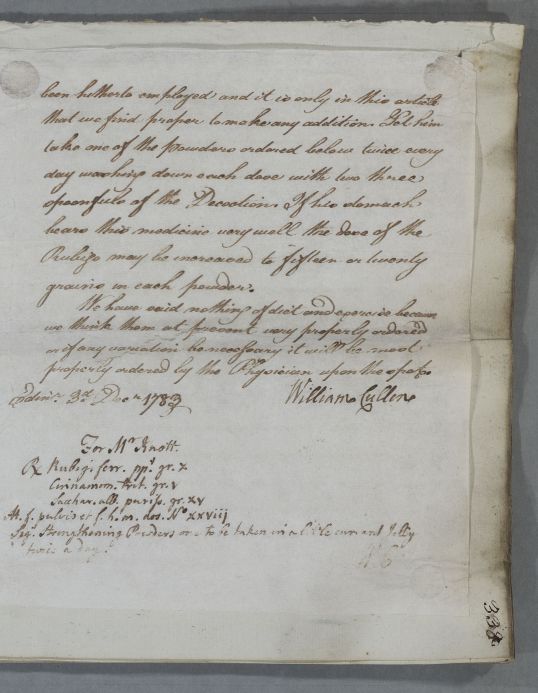 been hitherto employed and it is only in this article
that we find proper to make any addition. Let him
take one of the powders ordered below twice every
day washing down each dose with two three
spoonfuls of the Decoction. If his stomach
bears this medicine very well the dose of the
Rubigo may be increased to fifteen or twenty
grains in each powder.
We have said nothing of diet and exercise because
we think them at present very properly ordered
or if any variation be necessary it will be most
properly ordered by the Physician upon the spot.
Edinr. 3d. Decr 1783
William Cullen
For Mr Knott.
℞ Rubig. ferr. ppt gr. x
Cinnamom. trit. gr. v
Sacchar. alb. puriss. gr. xv
M. f. pulvis et f. h. m. dos. No xxviij
Sig. Strengthening Powders one to be taken in a little currant Jelly
twice a day.
W C
338.